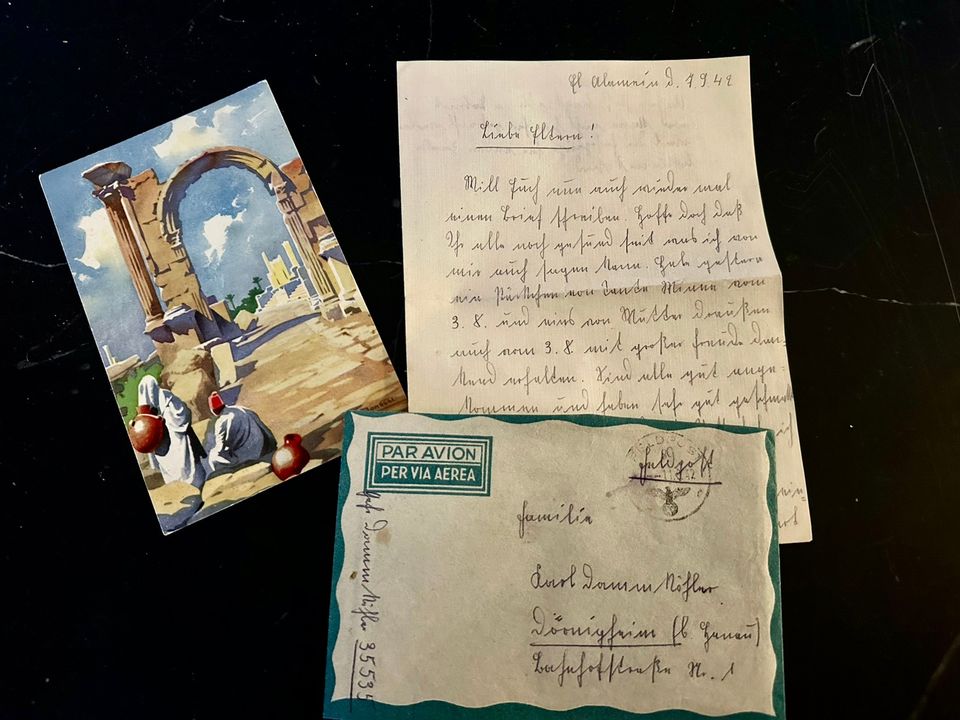 El Alamein d. 7.9.42
Liebe Eltern!
Will Euch nun auch wieder mal
einen Brief schreiben. Hoffe doch daß
Ihr alle noch gesund seit was ich von
mir auch sagen kann. Habe gestern
ein Päckchen von Tante Minna vom
3. 8. und eins von Mutter draußen
auch vom 3. 8. mit großer Freude dan-
kend erhalten. Sind alle gut ange-
kommen und haben sehr gut
ich
PAR AVION
PER VIA AEREA
FELDPOST
Feldpost
Familie
Karl Dammköhler
Dörnigheim (b Hanau)
Bahnhofstraße Nr. 1
Gefr. Dammköhler 35535